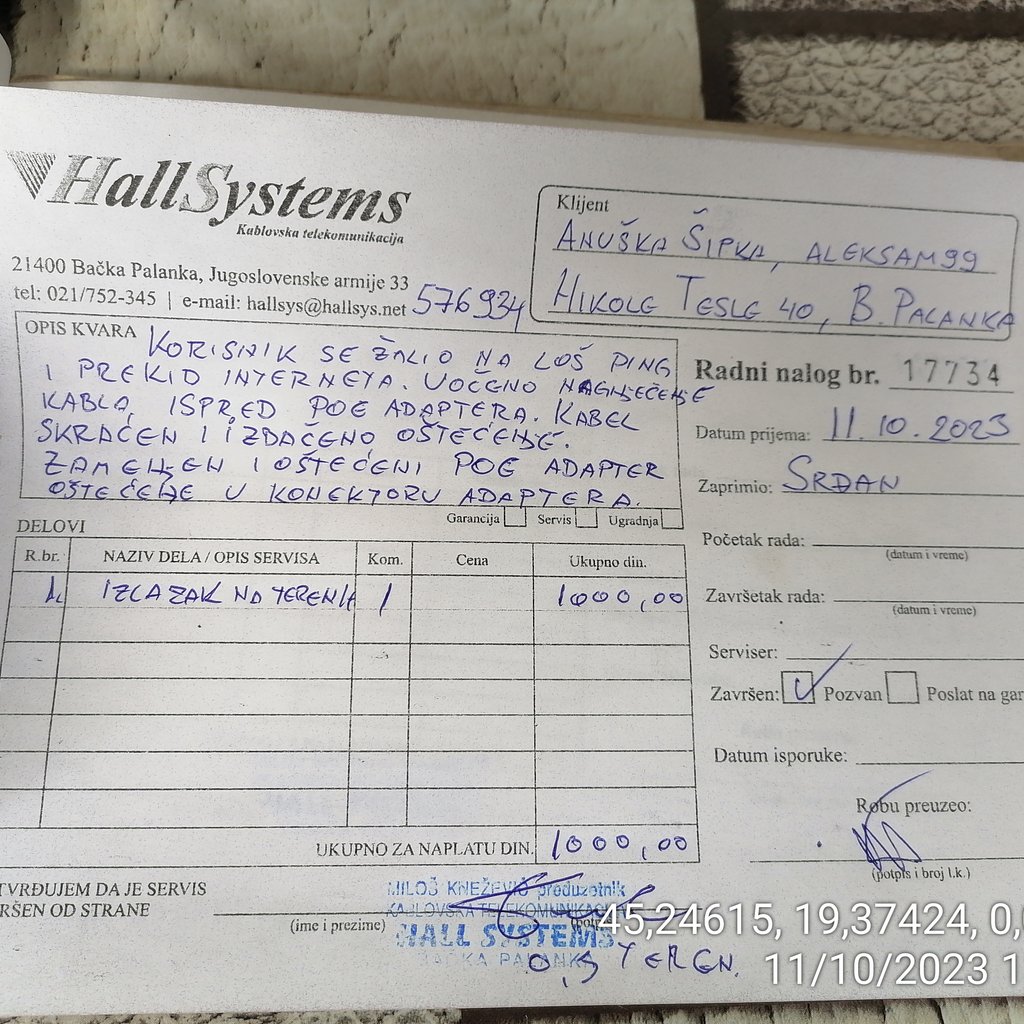 HallSystems
Kablovska telekomunikacija
21400 Bačka Palanka, Jugoslovenske armije 33
tel: 021/752-345 | e-mail: hallsys@hallsys.net
576934
Klijent
ANUŠKA ŠIPKA, ALEKSAM99
NIKOLE TESLE 40, B. PALANKA
OPIS KVARA
KORISNIK SE ŽALIO NA LOŠ PING
I PREKID INTERNETA. UOČENO NAGNJEČENJE
KABLA, ISPRED POE ADAPTERA. KABEL
SKRAĆEN I IZBAČENO OŠTEĆENJE.
ZAMENJEN I OŠTEĆENI POE ADAPTER
OŠTEĆENJE U KONEKTORU ADAPTERA.
Garancija Servis Ugradnja
Radni nalog br. 17734
Datum prijema: 11.10.2023
Zaprimio: SRĐAN
Početak rada:
(datum i vreme)
Završetak rada:
(datum i vreme)
Serviser:
Završen: Pozvan Poslat na gar
Datum isporuke:
Robu preuzeo:
(potpis i broj l.k.)
DELOVI
R.br. NAZIV DELA / OPIS SERVISA Kom. Cena Ukupno din.
1. IZLAZAK NA TEREN 1 1000,00
UKUPNO ZA NAPLATU DIN. 1000,00
TVRĐUJEM DA JE SERVIS
RŠEN OD STRANE
(ime i prezime)
MILOŠ KNEŽEVIĆ preduzetnik
KABLOVSKA TELEKOMUNIKACIJA
HALL SYSTEMS
BAČKA PALANKA
0,5 TEREN.
45,24615, 19,37424, 0,
11/10/2023 1